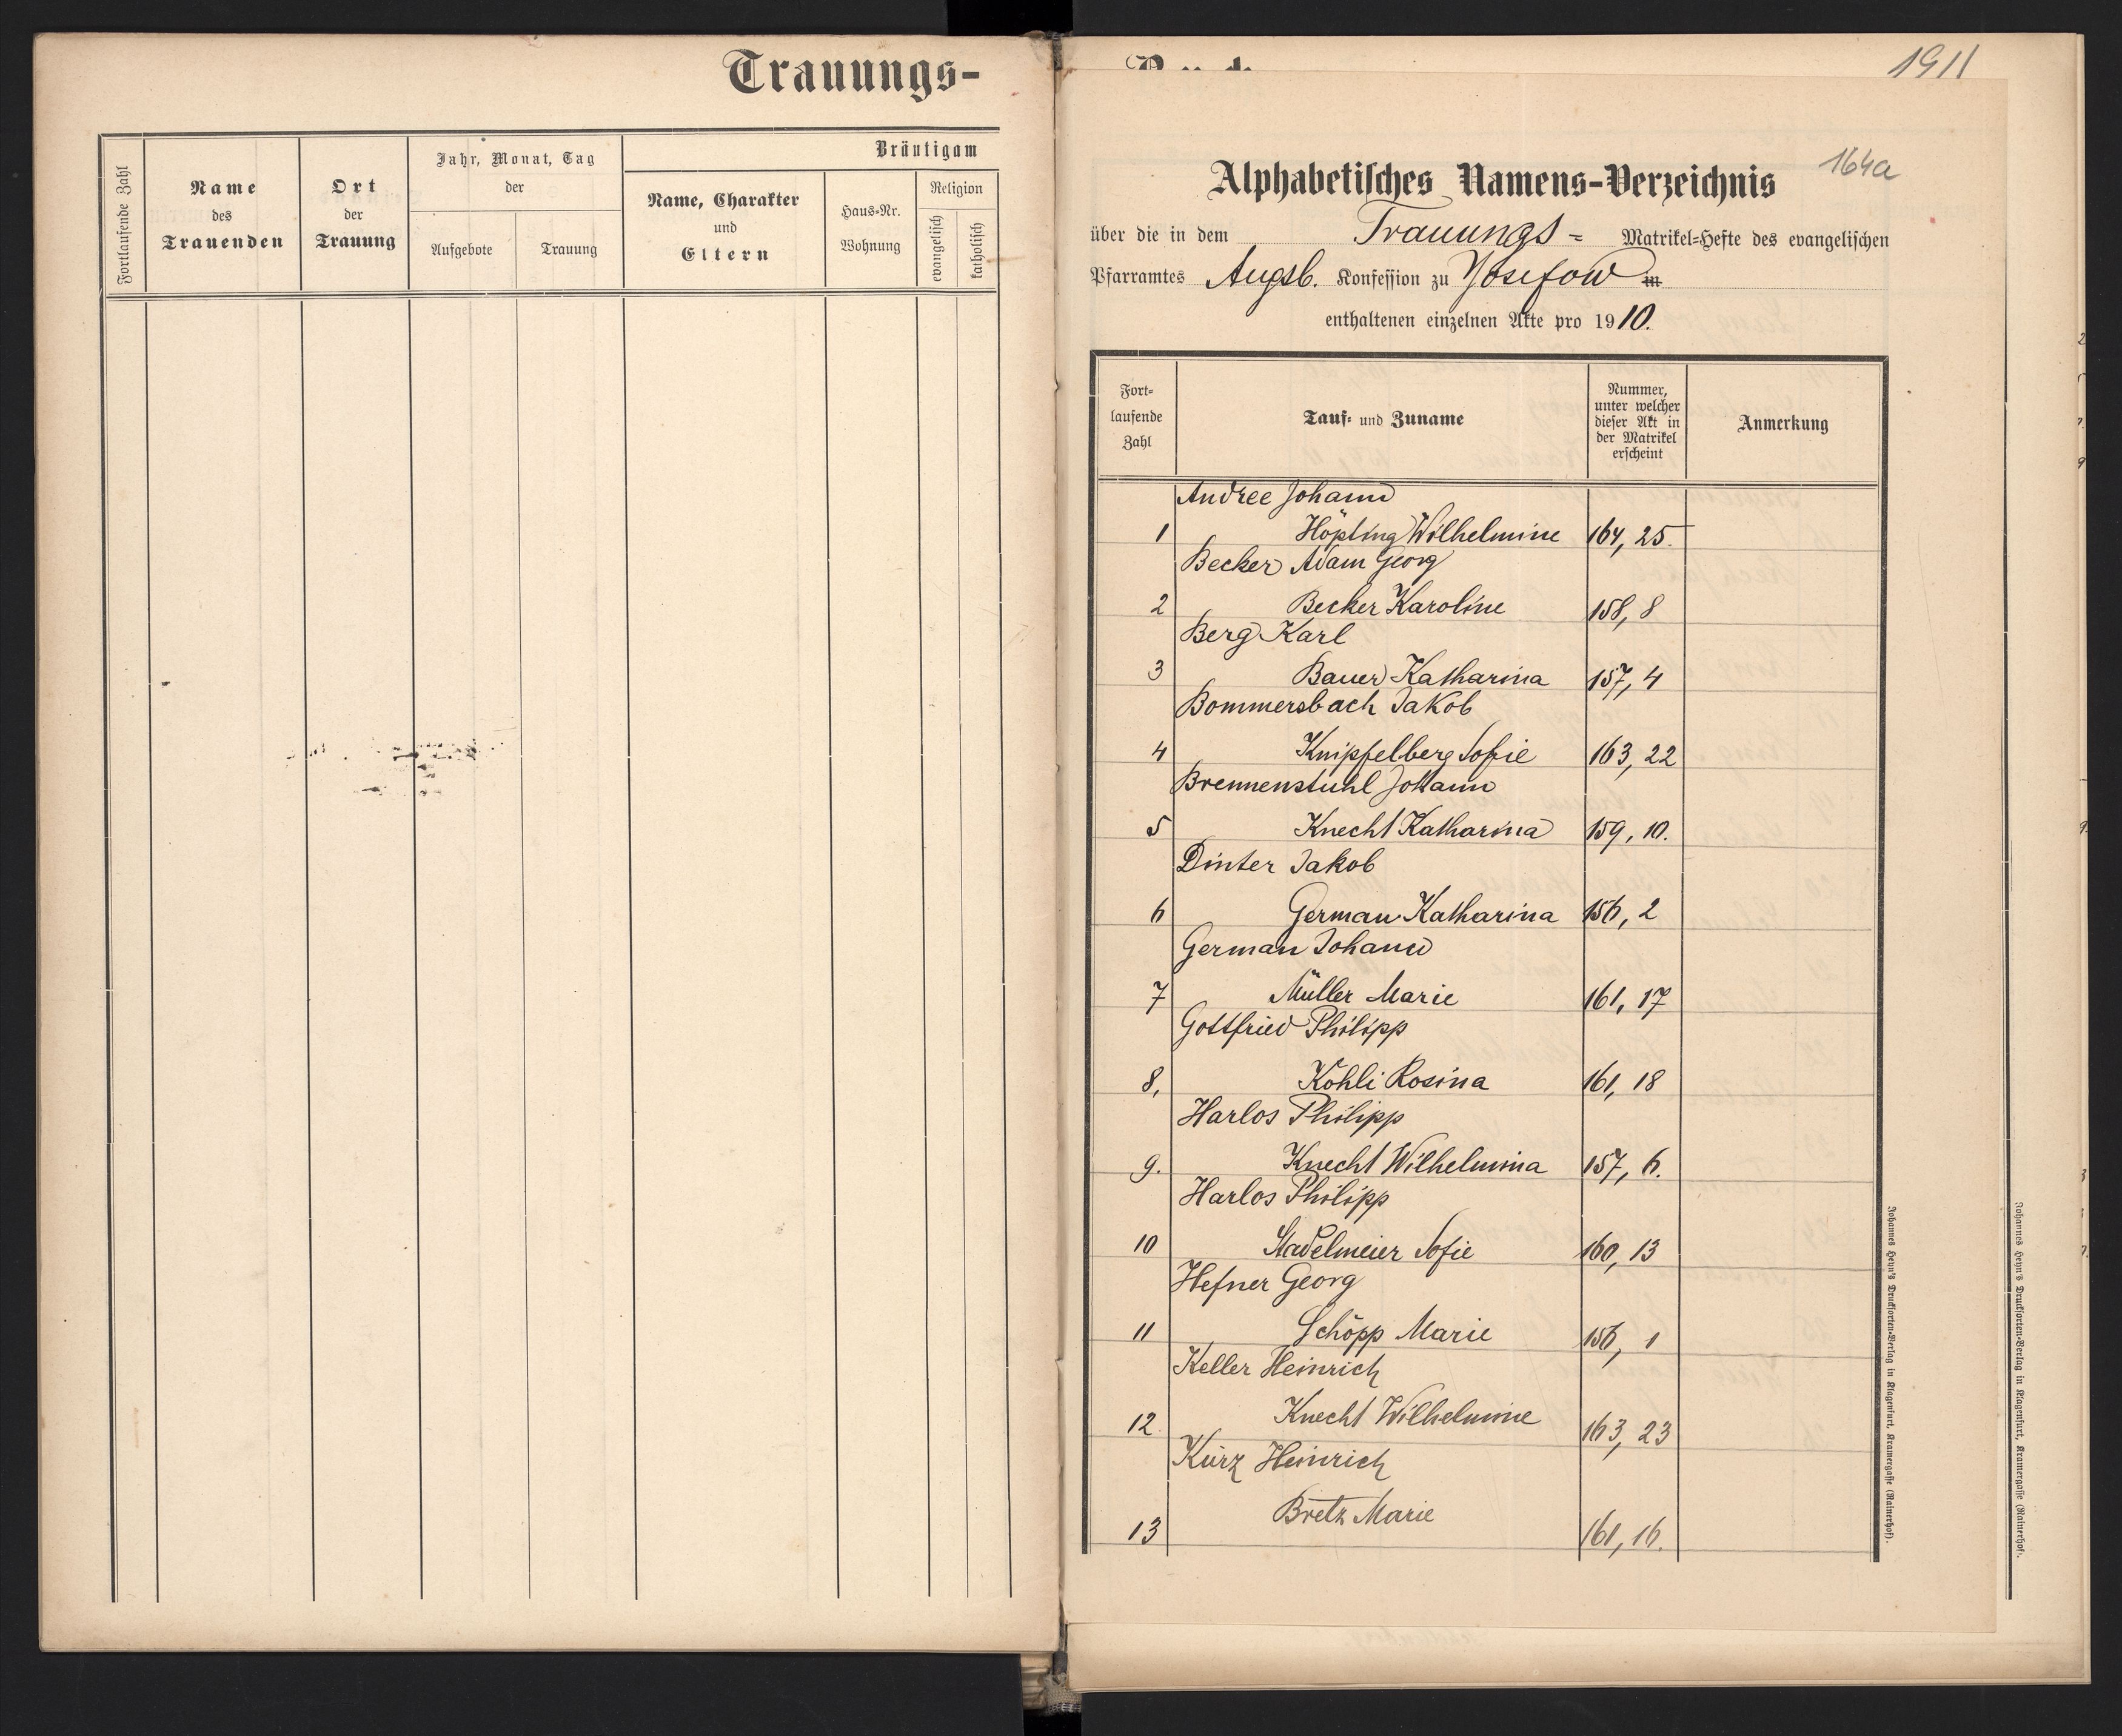 Trauungs-
Fortlaufende Zahl
Name
des
Trauenden
Ort
der
Trauung
Jahr, Monat, Tag
der
Aufgebote
Trauung
Bräutigam
Name, Charakter
und
Eltern
Haus-Nr.
Wohnung
Religion
evangelisch
katholisch
1911
164a
Alphabetisches Namens-Verzeichnis
über die in dem Trauungs- Matrikel-Hefte des evangelischen
Pfarramtes Augsb. Konfession zu Josefow in
enthaltenen einzelnen Akte pro 1910.
Fort-
laufende
Zahl
Tauf- und Zuname
Nummer,
unter welcher
dieser Akt in
der Matrikel
erscheint
Anmerkung
Andree Johann
1 Höpling Wilhelmine 164, 25
Becker Adam Georg
2 Becker Karoline 158, 8
Berg Karl
3 Bauer Katharina 157, 4
Bommersbach Jakob
4 Knipfelberg Sofie 163, 22
Brennenstuhl Johann
5 Knecht Katharina 159, 10.
Dinter Jakob
6 German Katharina 156, 2
German Johann
7 Müller Marie 161, 17
Gottfried Philipp
8, Kohli Rosina 161, 18
Harlos Philipp
9. Knecht Wilhelmina 157, 6.
Harlos Philipp
10 Stadelmeier Sofie 160, 13
Hefner Georg
11 Schöpp Marie 156, 1
Keller Heinrich
12 Knecht Wilhelmine 163, 23
Kurz Heinrich
13 Bretz Marie 161, 16.
Johannes Heyn's Drucksorten-Verlag in Klagenfurt, Kramergasse (Rainerhof).
Johannes Heyn's Drucksorten-Verlag in Klagenfurt, Kramergasse (Rainerhof).